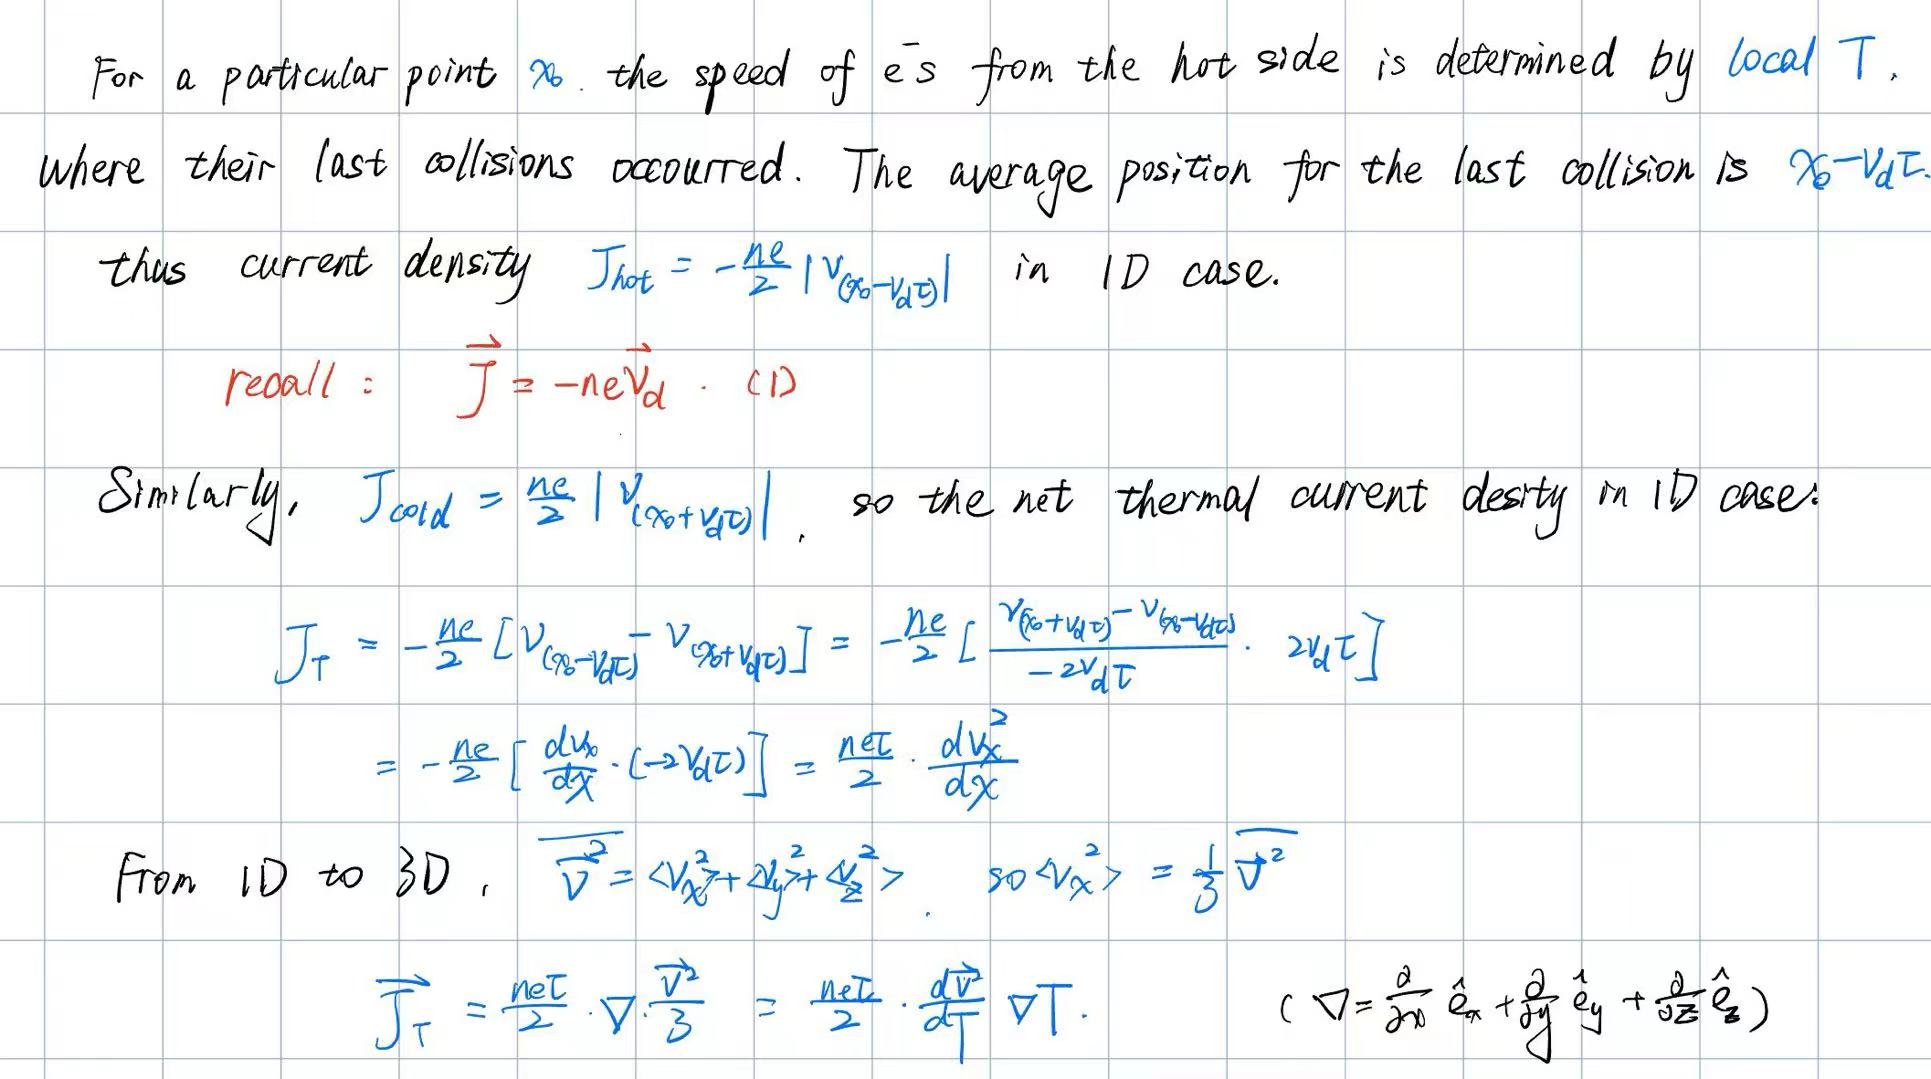 For a particular point x₀. the speed of e⁻s from the hot side is determined by local T.
where their last collisions occourred. The average position for the last collision is x₀-v_dτ.
thus current density J_hot = -ne/2 |v_(x₀-v_dτ)| in 1D case.
recall: J⃗ = -nev⃗_d. (1)
Similarly, J_cold = ne/2 |v_(x₀+v_dτ)|, so the net thermal current desity in 1D case:
J_T = -ne/2 [v_(x₀-v_dτ) - v_(x₀+v_dτ)] = -ne/2 [(v_(x₀+v_dτ) - v_(x₀-v_dτ))/(-2v_dτ) · 2v_dτ]
= -ne/2 [dv_x/dx · (-2v_dτ)] = neτ/2 · dv_x²/dx
From 1D to 3D, \overline{v⃗²} = <v_x²>+<v_y²>+<v_z²>. so <v_x²> = 1/3 \overline{v⃗²}
J⃗_T = neτ/2 · ∇ · v⃗²/3 = neτ/2 · dv⃗²/dT ∇T. (∇ = ∂/∂x ê_x + ∂/∂y ê_y + ∂/∂z ê_z)